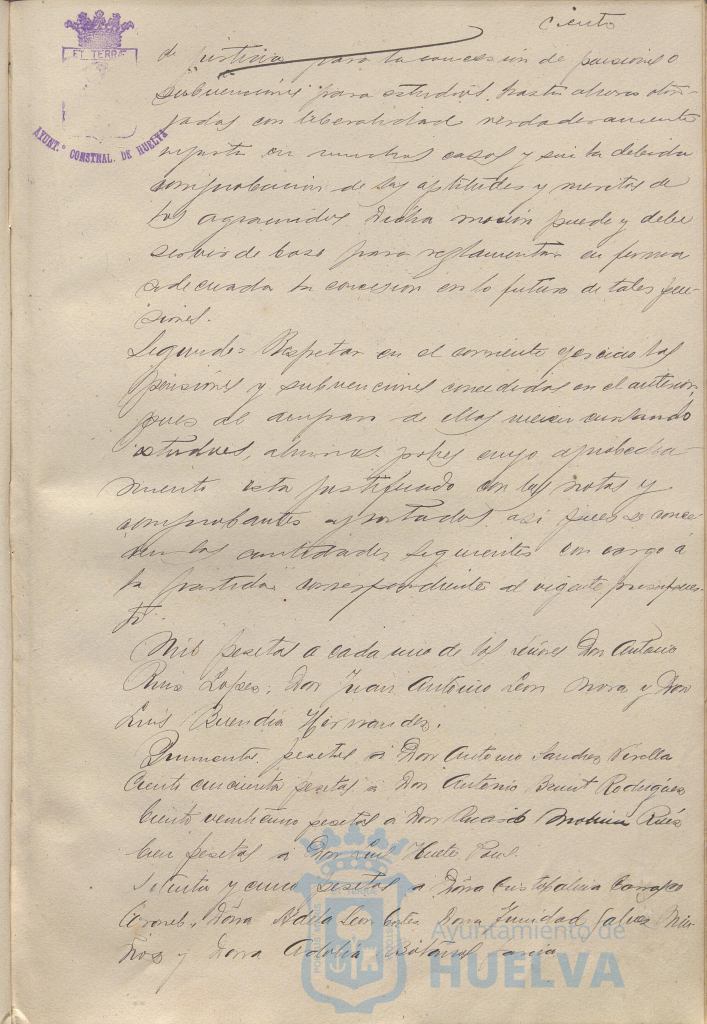 ciento
de justicia para la concesión de pensiones o
subvenciones para estudios, hasta ahora otor-
gadas con liberalidad verdaderamente
injusta en muchos casos y sin la debida
comprobacion de las aptitudes y meritos de
los agraciados. Dicha mocion puede y debe
servir de base para reglamentar en forma
adecuada la concesion en lo futuro de tales pen-
siones.
Segundo = Respetar en el corriente ejercicio las
pensiones y subvenciones concedidas en el anterior,
pues al amparo de ellas vienen cursando
estudios, alumnos pobres cuyo aprovecha-
miento esta justificado con las notas y
comprobantes aportados, asi pues se conce-
den las cantidades siguientes con cargo á
la partida correspondiente al vigente presupues-
to.
Mil pesetas a cada uno de los señores Don Antonio
Ruiz Lopez, Don Juan Antonio Leon Mora y Don
Luis Buendia Hernandez.
Quinientas pesetas a Don Antonio Sanchez
Ciento cincuenta pesetas a Don Antonio Rodriguez
Ciento veinticinco pesetas a Don Molina Ruiz
Cien pesetas a Don Luis
Setenta y cinco pesetas a Doña
Doña Adela Leon Doña Trinidad Galvez
y Doña Adolfa
ET TERRÆ
AYUNT.º CONSTNAL. DE HUELVA
Ayuntamiento de
HUELVA